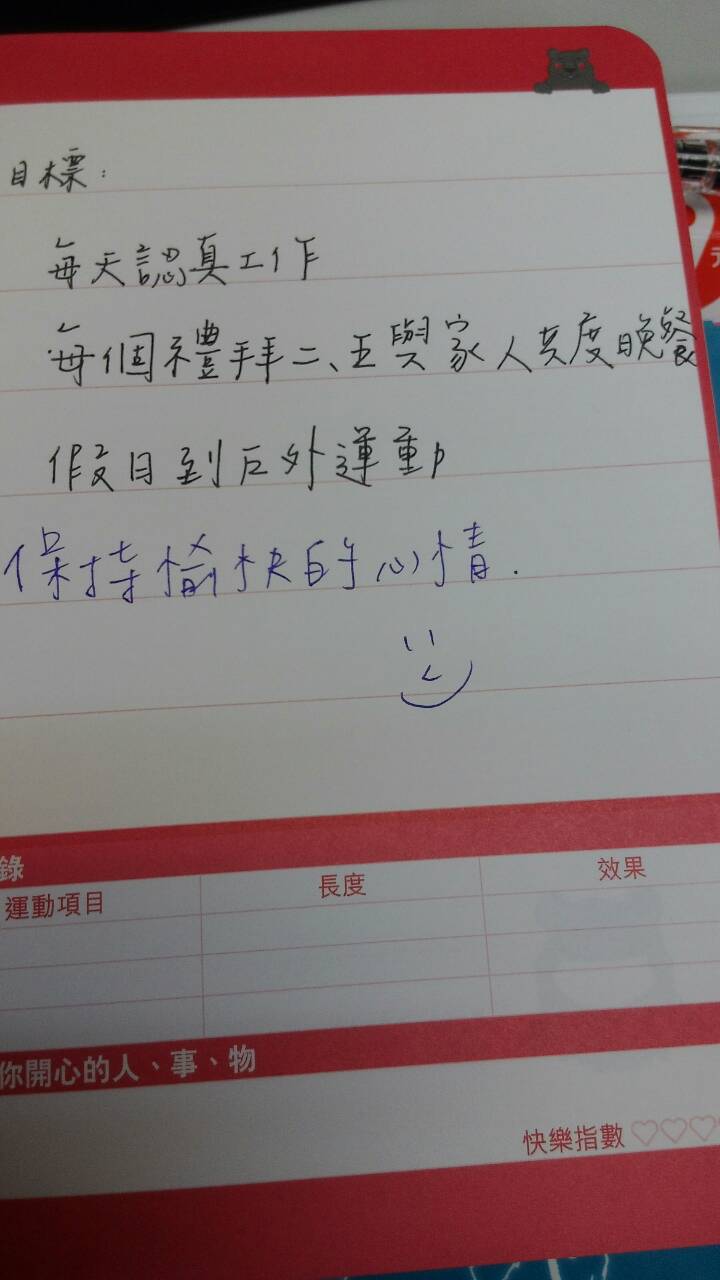 目標：
每天認真工作
每個禮拜二、五與家人共度晚餐
假日到戶外運動
保持愉快的心情.
錄
運動項目 長度 效果
你開心的人、事、物
快樂指數